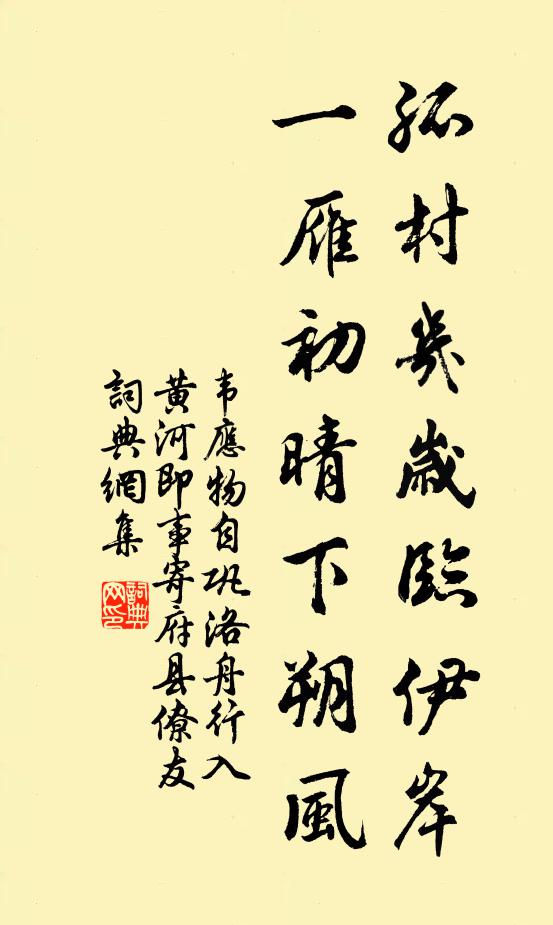 孤村幾歲臨伊岸
一雁初晴下朔風
韦應物自巩洛舟行入
黄河即事寄府县僚友
詞典網集
詞典网印